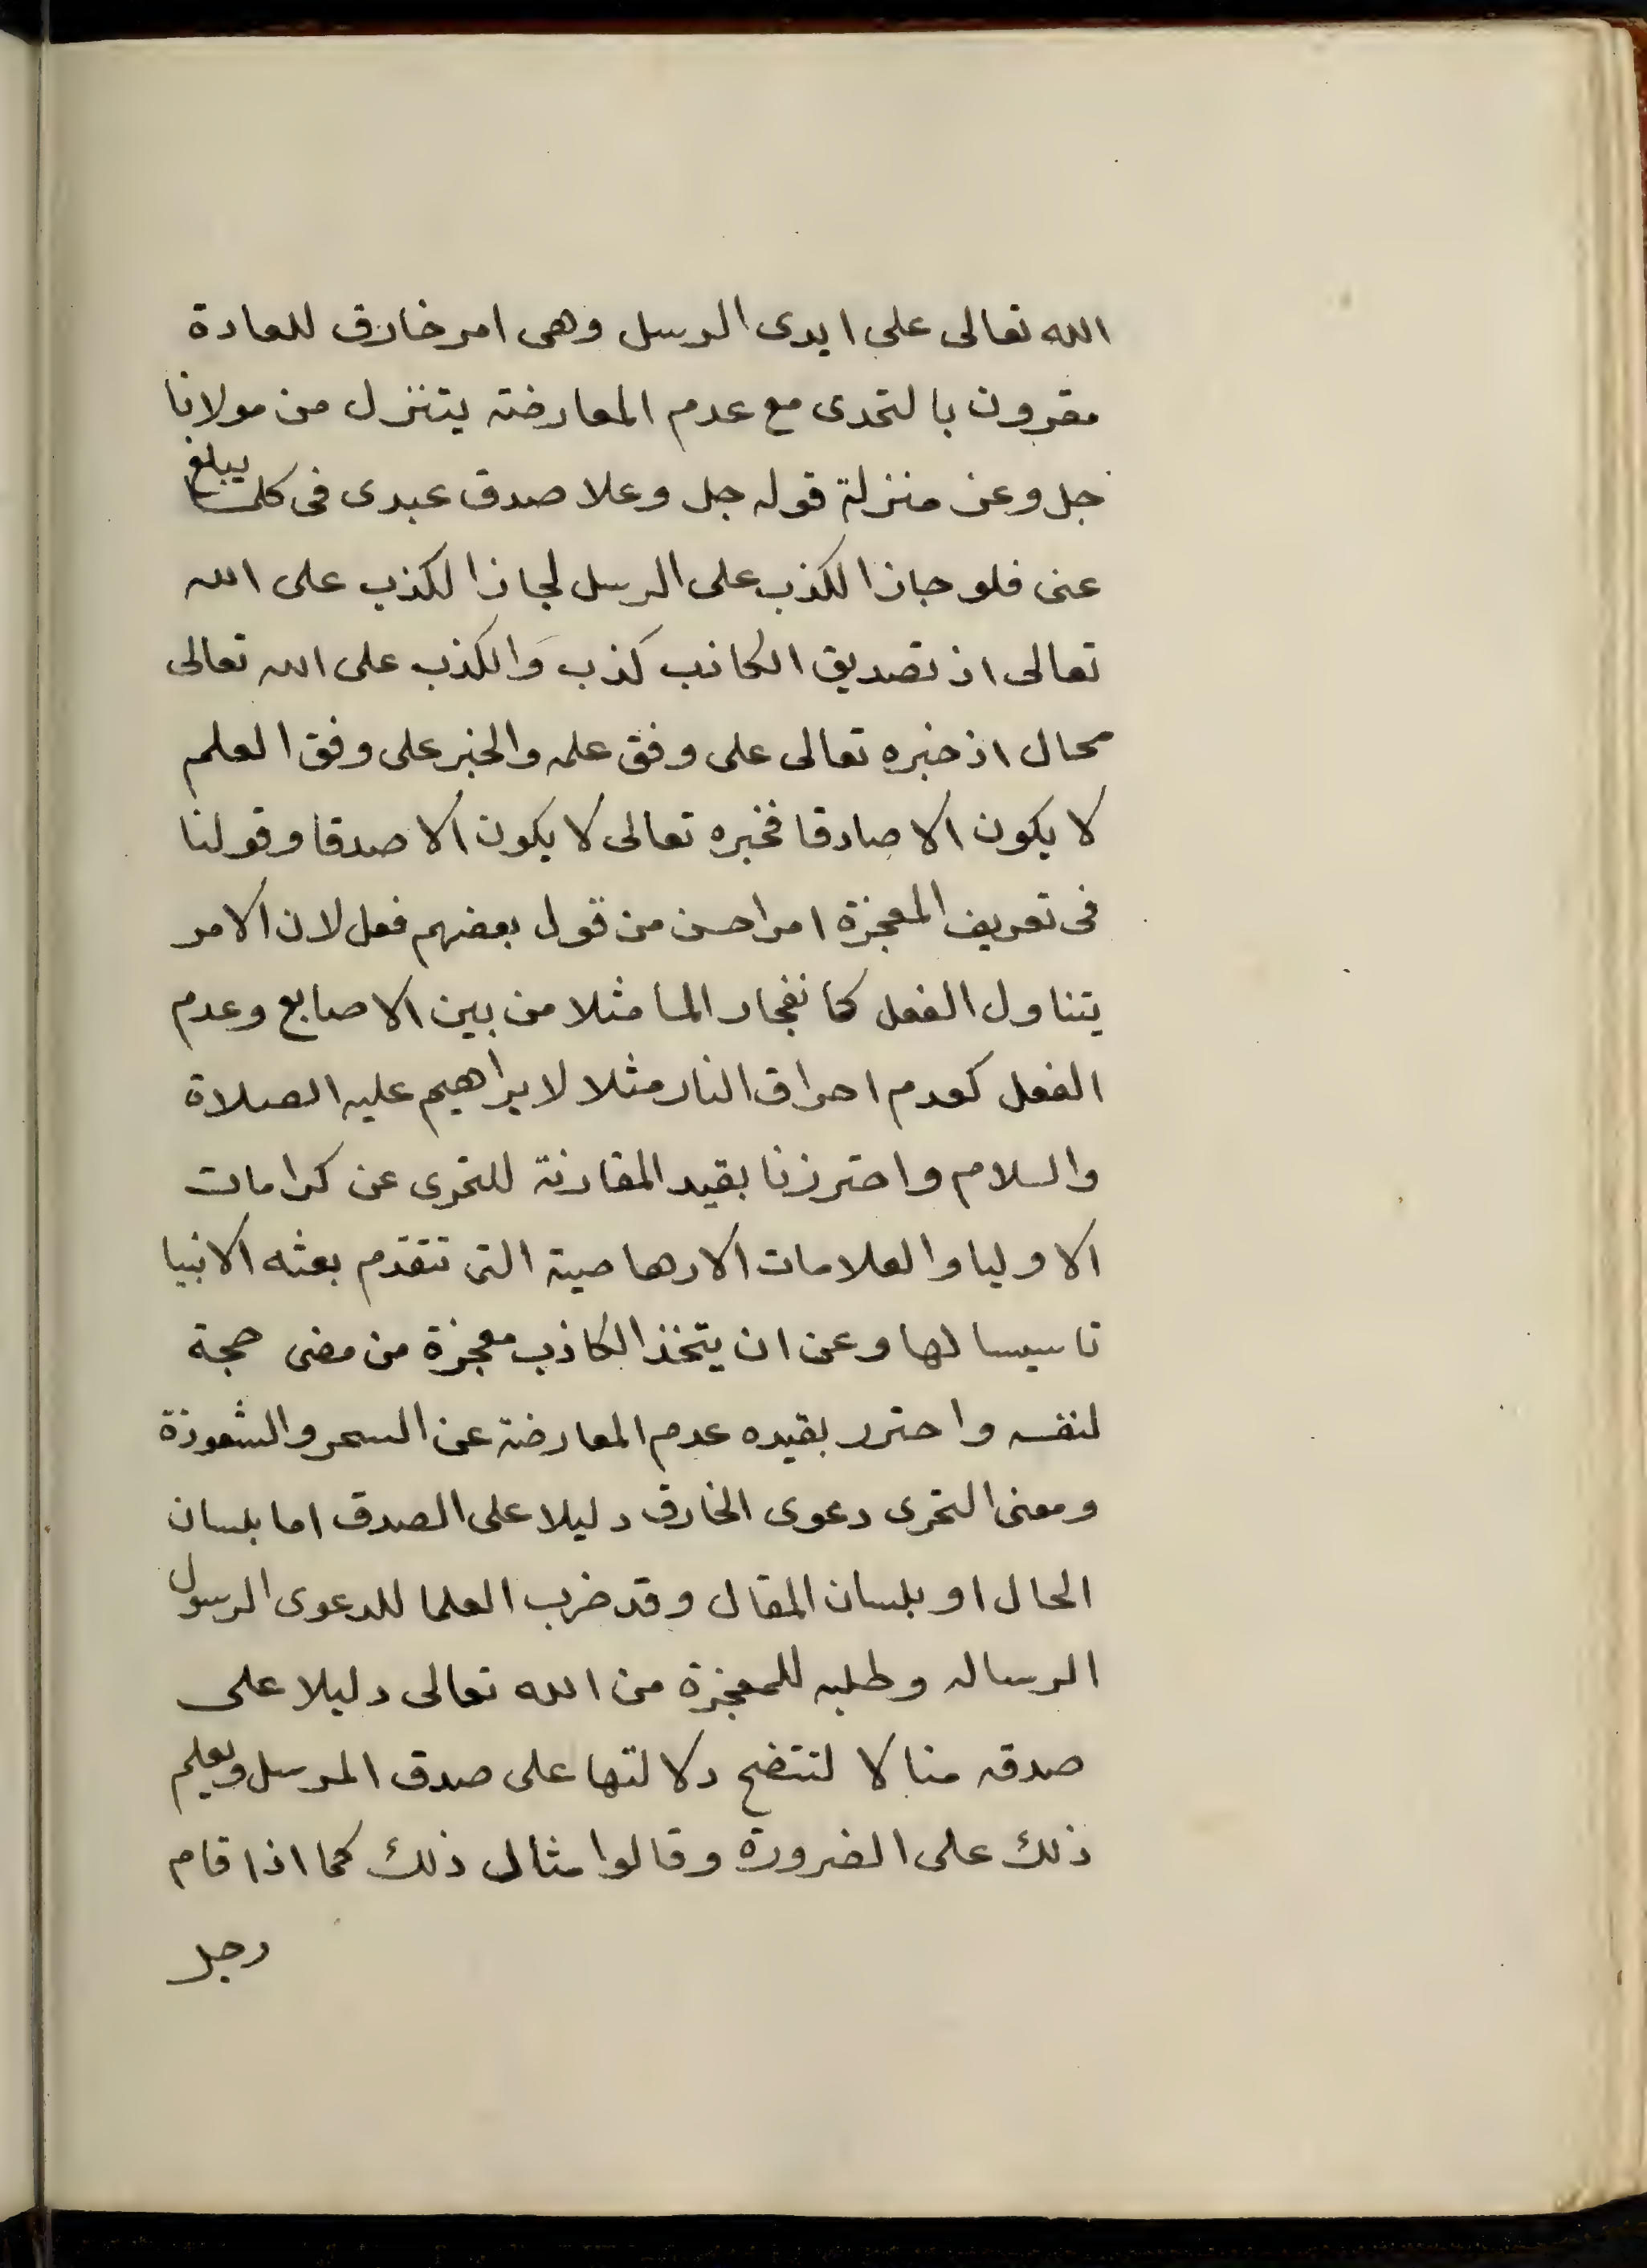 الله تعالى على ايدى الرسل وهى امر خارق للعادة
مقرون بالتحدى مع عدم المعارضة يتنزل من مولانا
جل وعز منزلة قوله جل وعلا صدق عبدى فى كلما يبلغ
عنى فلو جاز الكذب على الرسل لجاز الكذب على الله
تعالى اذ تصديق الكاذب كذب والكذب على الله تعالى
محال اذ خبره تعالى على وفق علمه والخبر على وفق العلم
لا يكون الا صادقا فخبره تعالى لا يكون الا صدقا وقولنا
فى تعريف المعجزة امر احسن من قول بعضهم فعل لان الامر
يتناول الفعل كانفجار الما مثلا من بين الاصابع وعدم
الفعل كعدم احراق النار مثلا لابراهيم عليه الصلاة
والسلام واحترزنا بقيد المقارنة للتحرى عن كرامات
الاوليا والعلامات الارهاصية التى تتقدم بعثه الانبيا
تاسيسا لها وعن ان يتخذ الكاذب معجزة من مضى حجة
لنفسه واحترر بقيده عدم المعارضة عن السحر والشعوذة
ومعنى التحرى دعوى الخارق دليلا على الصدق اما بلسان
الحال او بلسان المقال وقد ضرب العلما للدعوى الرسول
الرساله وطلبه للمعجزة من الله تعالى دليلا على
صدقه منالا لتتضح دلالتها على صدق المرسل ويعلم
ذلك على الضرورة وقالوا مثال ذلك كما اذا قام
رجل